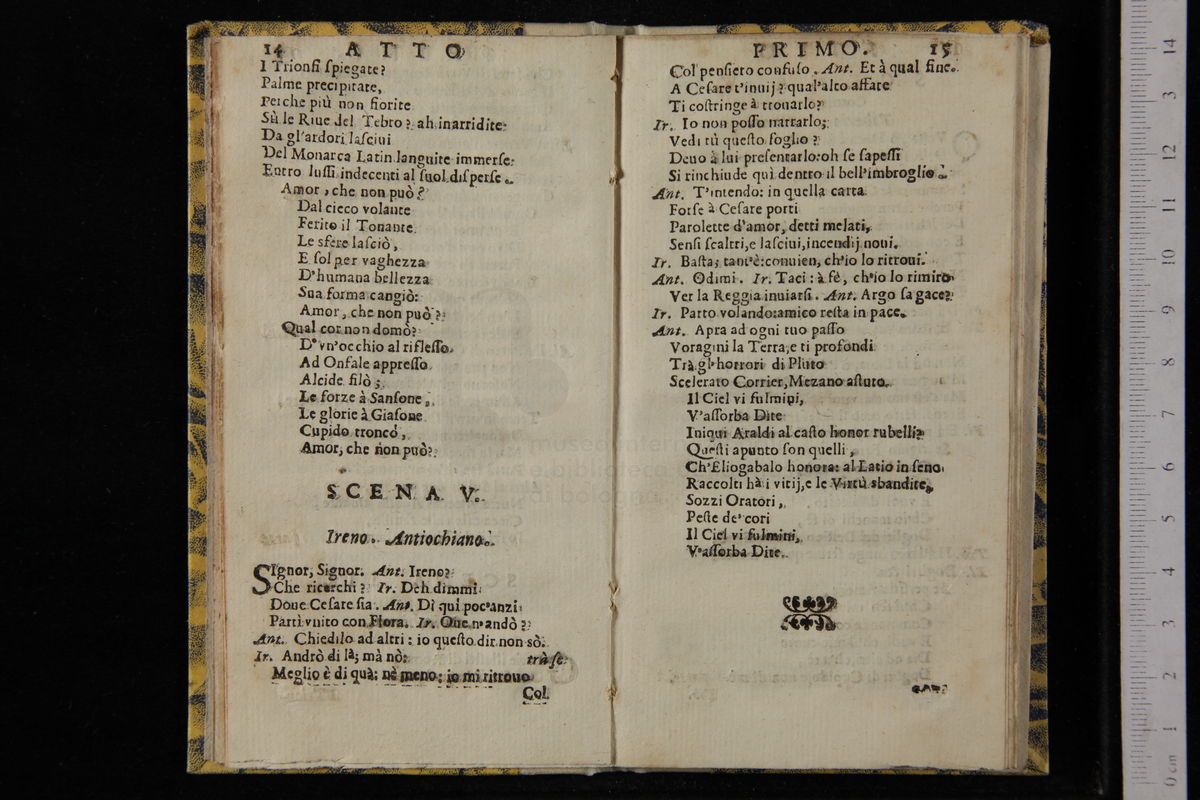 14 ATTO
I Trionfi ſpiegate?
Palme precipitate,
Perche più non fiorite
Sù le Riue del Tebro? ah inarridite:
Da gl'ardori laſciui
Del Monarca Latin languite immerſe:
Entro luſſi indecenti al ſuol diſperſe.
Amor, che non può?
Dal cieco volante
Ferito il Tonante
Le sfere laſciò,
E ſol per vaghezza
D'humana bellezza
Sua forma cangiò:
Amor, che non può?
Qual cor non domò?
D'vn'occhio al rifleſſo
Ad Onfale appreſſo
Alcide filò;
Le forze à Sanſone,
Le glorie à Giaſone
Cupido troncò,
Amor, che non può?
SCENA V.
Ireno. Antiochiano.
SIgnor, Signor. Ant. Ireno?
Che ricerchi? Ir. Deh dimmi
Doue Ceſare ſia. Ant. Di qui poc'anzi
Partì vnito con Flora. Ir. Oue n'andò?
Ant. Chiedilo ad altri: io queſto dir non sò.
Ir. Andrò di là; mà nò: trà ſe.
Meglio è di quà: nè meno; io mi ritrouo
Col
PRIMO. 15
Col penſiero confuſo. Ant. Et à qual fine
A Ceſare t'inuij? qual'alto affare
Ti coſtringe à trouarlo?
Ir. Io non poſſo narrarlo;
Vedi tù queſto foglio?
Deuo à lui preſentarlo: oh ſe ſapeſſi
Si rinchiude quì dentro il bell'imbroglio.
Ant. T'intendo: in quella carta
Forſe à Ceſare porti
Parolette d'amor, detti melati,
Senſi ſcaltri, e laſciui, incendij noui.
Ir. Baſta; tant'è: conuien, ch'io lo ritroui.
Ant. Odimi. Ir. Taci: à fè, ch'io lo rimiro
Ver la Reggia inuiarſi. Ant. Argo ſagace?
Ir. Parto volando: amico reſta in pace.
Ant. Apra ad ogni tuo paſſo
Voragini la Terra, e ti profondi
Trà gl'horrori di Pluto
Scelerato Corrier, Mezano aſtuto.
Il Ciel vi fulmini,
V'aſſorba Dite
Iniqui Araldi al caſto honor rubelli:
Queſti apunto ſon quelli,
Ch'Eliogabalo honora: al Latio in ſeno
Raccolti hà i vitij, e le Virtù sbandite,
Sozzi Oratori,
Peſte de' cori
Il Ciel vi fulmini,
V'aſſorba Dite.